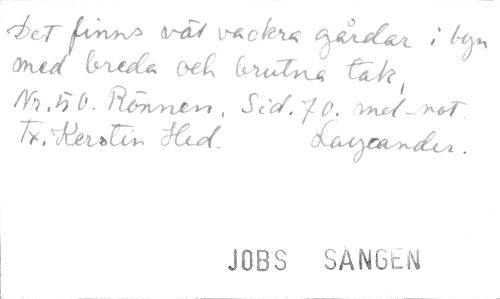 Det finns vät vackra gårdar i byn
med breda och brutna tak,
Nr. 50. Rönnen. Sid. 70. mel-not.
Tx. Kerstin Hed.
JOBS SANGEN